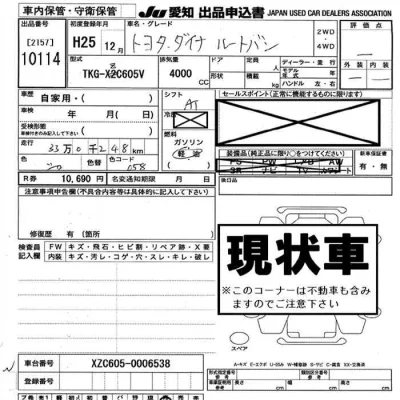 車内保管・守衛保管
JU 愛知 出品申込書 JAPAN USED CAR DEALERS ASSOCIATION
出品番号
[2157]
10114
初度登録年月
H25 12月
車名・グレード
トヨタ ダイナ ルートバン
2WD
4WD
評価点
外装 内装
型式
TKG-XZC605V
排気量
4000
CC
ドア
定員
名
形状
積載
kg
ディーラー・並行
モデル年式
ハンドル 左・右
車歴
自家用・
車検
年 月( 日)
受検形態
走行
33万0千248km
シフト
AT
冷房
燃料
ガソリン
軽油
セールスポイント(正常に機能するものに限る)
装備品(純正品に限り○をつけてください)
PS PW AB AW
SR ナビ TV カワシート
新車保証書
有・無
色
シロ
色替
色コード
058
R券 10,690円
名変通知期限 月 日
注意事項申告欄(不具合内容等は具体的に記入して下さい)
修復歴 有(箇所
検査員記入欄
FW キズ・飛石・ヒビ割・リペア跡・X要
内装 キズ・汚レ・コゲ・穴・スレ・キレ・破レ
現状車
※このコーナーは不動車も含みますのでご注意下さい
スペア
車台番号 XZC605-0006538
登録番号
長さ cm 幅 cm 高さ cm